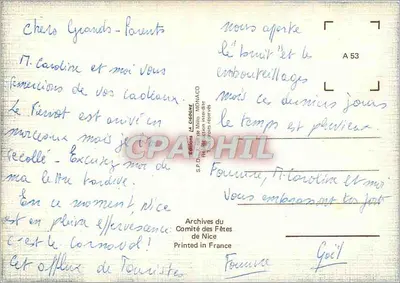 Chers Grands-Parents
M. Caroline et moi vous
remercions de vos cadeaux.
Le Pierrot est arrivé en
morceaux mais je l'ai
recollé - Excusez moi de
ma lettre tardive.
En ce moment, Nice
est en pleine effervescence
c'est le Carnaval!
Cet afflux de Touristes
nous apporte
le bruit et les
embouteillages
mais ces derniers jours
le temps est pluvieux
M. Caroline et moi
Vous embrassons très fort
A 53
CPARPHIL
Archives du
Comité des Fêtes
de Nice
Printed in France